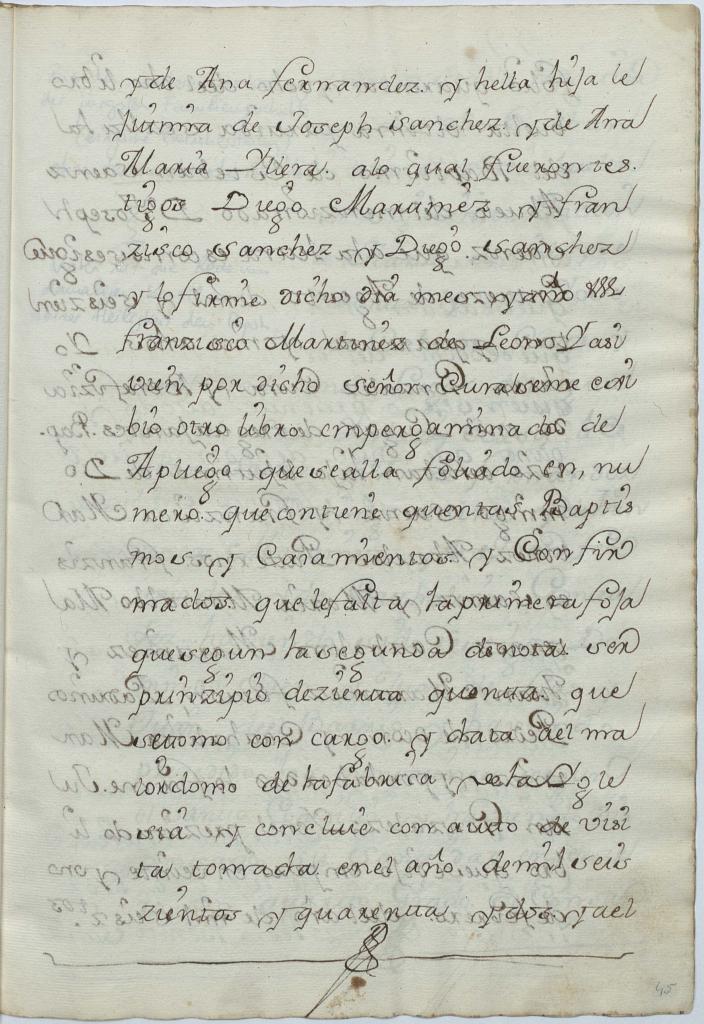 y de Ana fernandez. y hella hija le
jitima de Joseph sanchez y de Ana
Maria Yllera. alo qual fueron tes.
tigos Diego Martinez y fran
zisco sanchez y Diego. sanchez
y lo firme dicho dia mes y año
franzisco Martinez de Leon Y asi
vien por dicho señor Cura seme exi
bio otro libro empergaminado de
A pliego que se alla foliado en, nu
mero. que contiene quentas Baptis
mos y Casamientos y Confir
mados que le falta la primera foja
que segun la segunda denota ser
prinzipio de zierta quenta. que
se tomo con cargo. y data del ma
iordomo de la fabrica de la Ygle
sia y concluie con auto de visi
ta tomada en el año de mil seis
zientos y quarenta y dos y a el
45